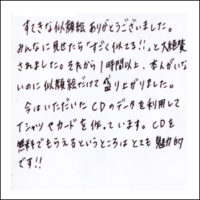 すてきな似顔絵ありがとうございました。
みんなに見せたら「すごく似てる!!」と大絶賛
されました。それから1時間以上、本人がいな
いのに似顔絵だけで盛り上がりました。
今はいただいたCDのデータを利用して
Tシャツやカードを作っています。CDを
無料でもらえるというところはとても魅力的
です!!